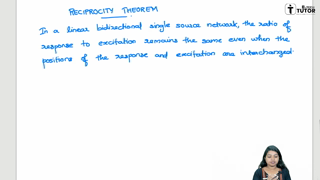 RECIPROCITY THEOREM
TUTOR
In a linear bidirectional single source network, the ratio of
response to excitation remains the same even when the
positions of the response and excitation are interchanged